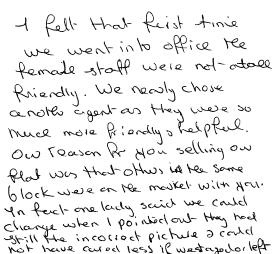 I felt that first time
we went into office the
female staff were not atall
friendly. We nearly chose
another agent as they were so
much more friendly & helpful.
Our reason for you selling our
flat was that others in the same
block were on the market with you.
In fact one lady said we could
change when I pointed out they had
still the incorrect picture & could
not have cared less if we stayed or left